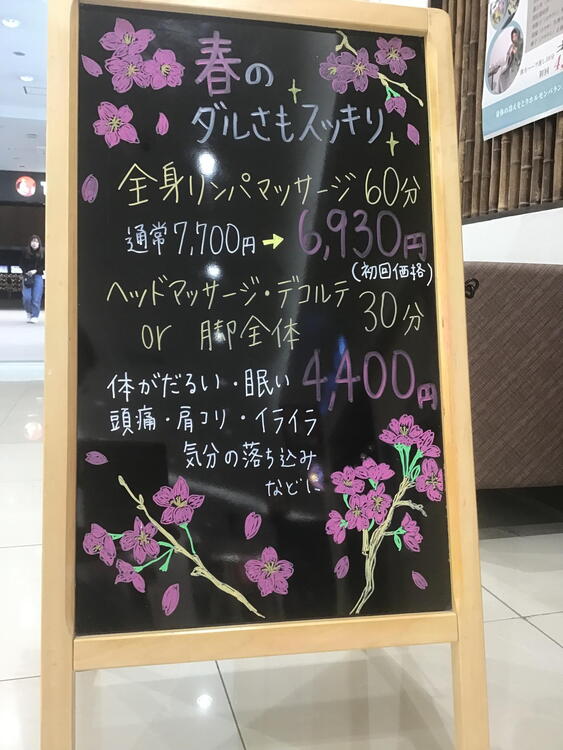 春の
ダルさもスッキリ
全身リンパマッサージ 60分
通常7,700円→6,930円
(初回価格)
ヘッドマッサージ・デコルテ
or 脚全体 30分
体がだるい・眠い 4,400円
頭痛・肩コリ・イライラ
気分の落ち込み
などに